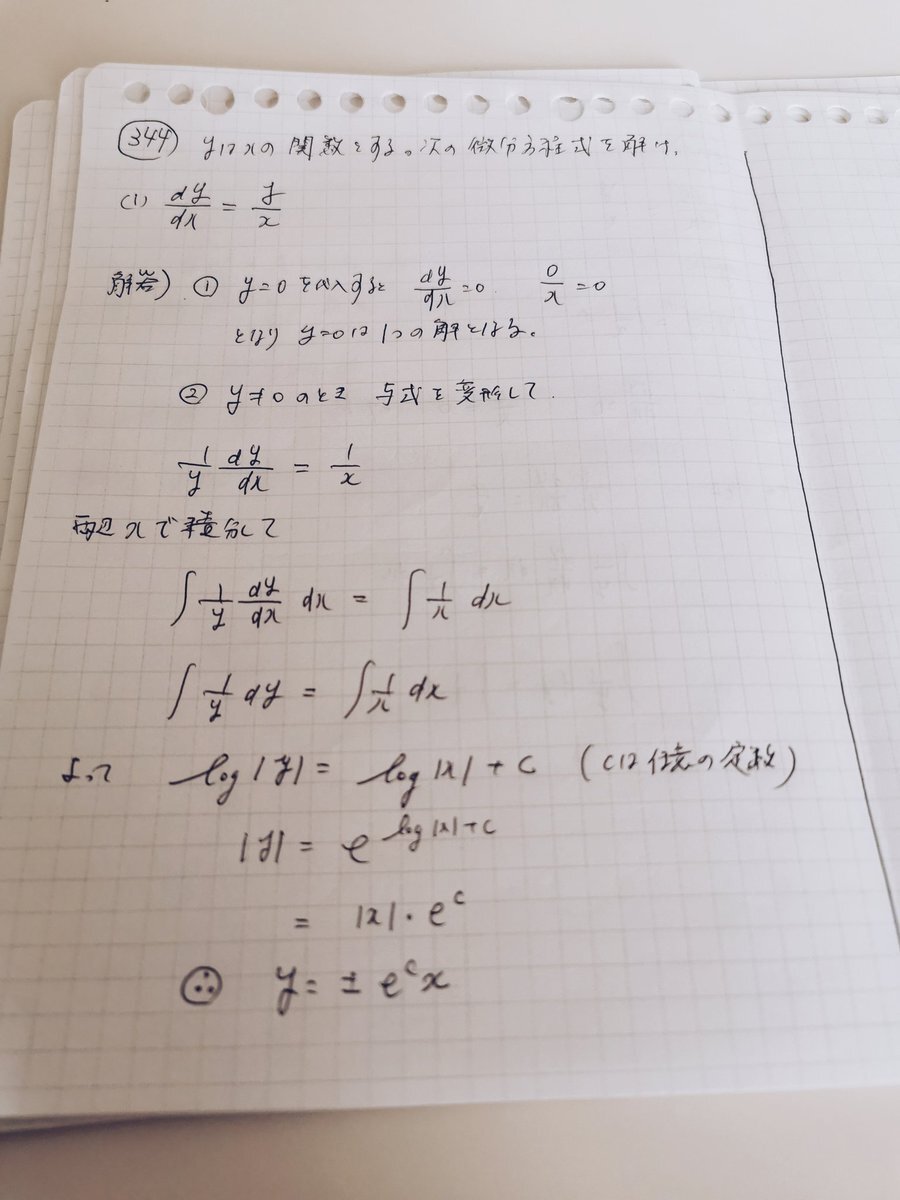 344) yはxの関数とする。次の微分方程式を解け.
(1) dy/dx = y/x
解答) ① y=0 を代入すると dy/dx=0 0/x=0
となり y=0は1つの解となる。
② y≠0 のとき 与式を変形して.
1/y dy/dx = 1/x
両辺xで積分して
∫ 1/y dy/dx dx = ∫ 1/x dx
∫ 1/y dy = ∫ 1/x dx
よって log|y| = log|x| + C (Cは任意の定数)
|y| = e^{log|x|+C}
= |x|・e^C
∴ y= ± e^C x